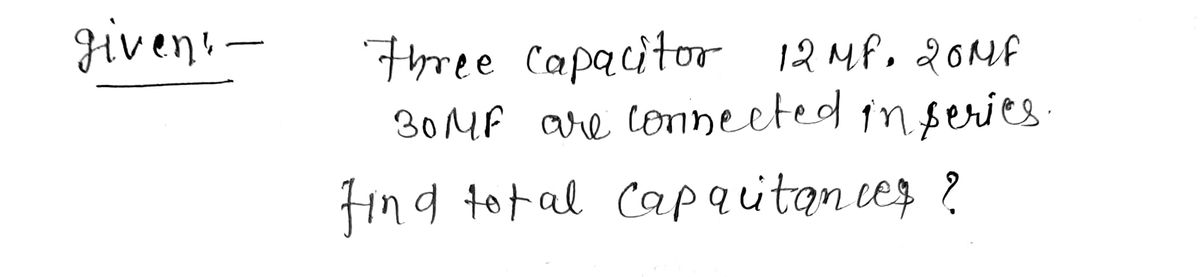 given:- Three capacitor 12 MF. 20MF
30MF are connected in series.
find total capacitances ?